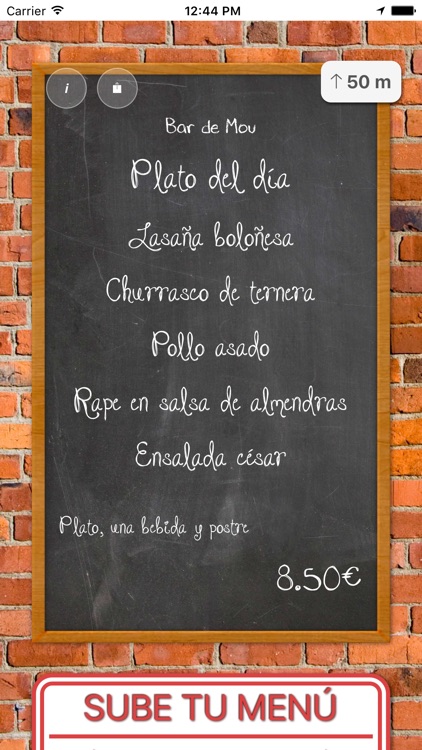 Carrier 12:44 PM
i
↑50 m
Bar de Mou
Plato del día
Lasaña boloñesa
Churrasco de ternera
Pollo asado
Rape en salsa de almendras
Ensalada césar
Plato, una bebida y postre
8.50€
SUBE TU MENÚ